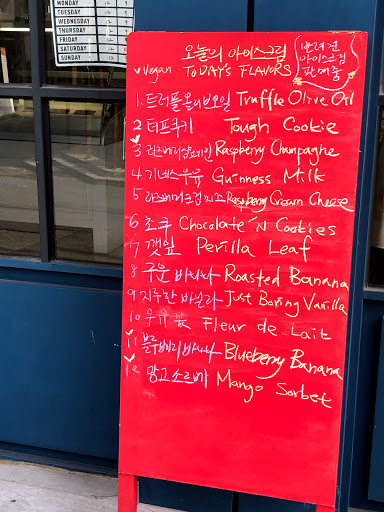 MONDAY
TUESDAY
WEDNESDAY
THURSDAY
FRIDAY
SATURDAY
SUNDAY
오늘의 아이스크림
✓Vegan TODAY'S FLAVORS
아이스크림
판매중
1. 트러플올리브오일 Truffle Olive Oil
2 터프쿠키 Tough Cookie
✓
3 라즈베리샴페인 Raspberry Champagne
4 기네스우유 Guinness Milk
5 라즈베리크림치즈 Raspberry Cream Cheese
6 초쿠 Chocolate 'N Cookies
7 깻잎 Perilla Leaf
8 구운 바나나 Roasted Banana
9 지루한 바닐라 Just Boring Vanilla
10 우유꽃 Fleur de Lait
✓
11 블루베리바나나 Blueberry Banana
✓
12 망고소르베 Mango Sorbet